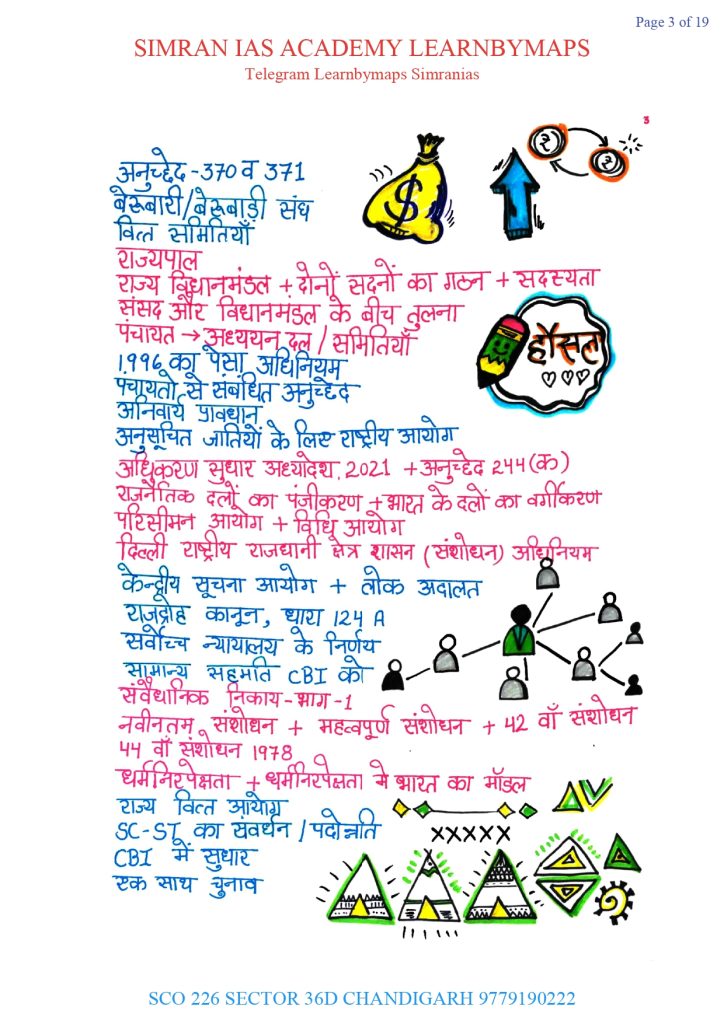 Page 3 of 19
SIMRAN IAS ACADEMY LEARNBYMAPS
Telegram Learnbymaps Simranias
3
अनुच्छेद - 370 व 371
बेरूबारी/बेरूबाड़ी संघ
वित्त समितियाँ
राज्यपाल
राज्य विधानमंडल + दोनों सदनों का गठन + सदस्यता
संसद और विधानमंडल के बीच तुलना
पंचायत → अध्ययन दल / समितियाँ
हौसला
1996 का पेसा अधिनियम
पंचायतों से संबंधित अनुच्छेद
अनिवार्य प्रावधान
अनुसूचित जातियों के लिए राष्ट्रीय आयोग
अधिकरण सुधार अध्यादेश, 2021 + अनुच्छेद 244 (क)
राजनैतिक दलों का पंजीकरण + भारत के दलों का वर्गीकरण
परिसीमन आयोग + विधि आयोग
दिल्ली राष्ट्रीय राजधानी क्षेत्र शासन (संशोधन) अधिनियम
केन्द्रीय सूचना आयोग + लोक अदालत
राजद्रोह कानून, धारा 124 A
सर्वोच्च न्यायालय के निर्णय
सामान्य सहमति CBI को
संवैधानिक निकाय - भाग - 1
नवीनतम संशोधन + महत्वपूर्ण संशोधन + 42 वाँ संशोधन
44 वाँ संशोधन 1978
धर्मनिरपेक्षता + धर्मनिरपेक्षता मे भारत का मॉडल
राज्य वित्त आयोग
SC-ST का संवर्धन / पदोन्नति
CBI में सुधार
एक साथ चुनाव
SCO 226 SECTOR 36D CHANDIGARH 9779190222